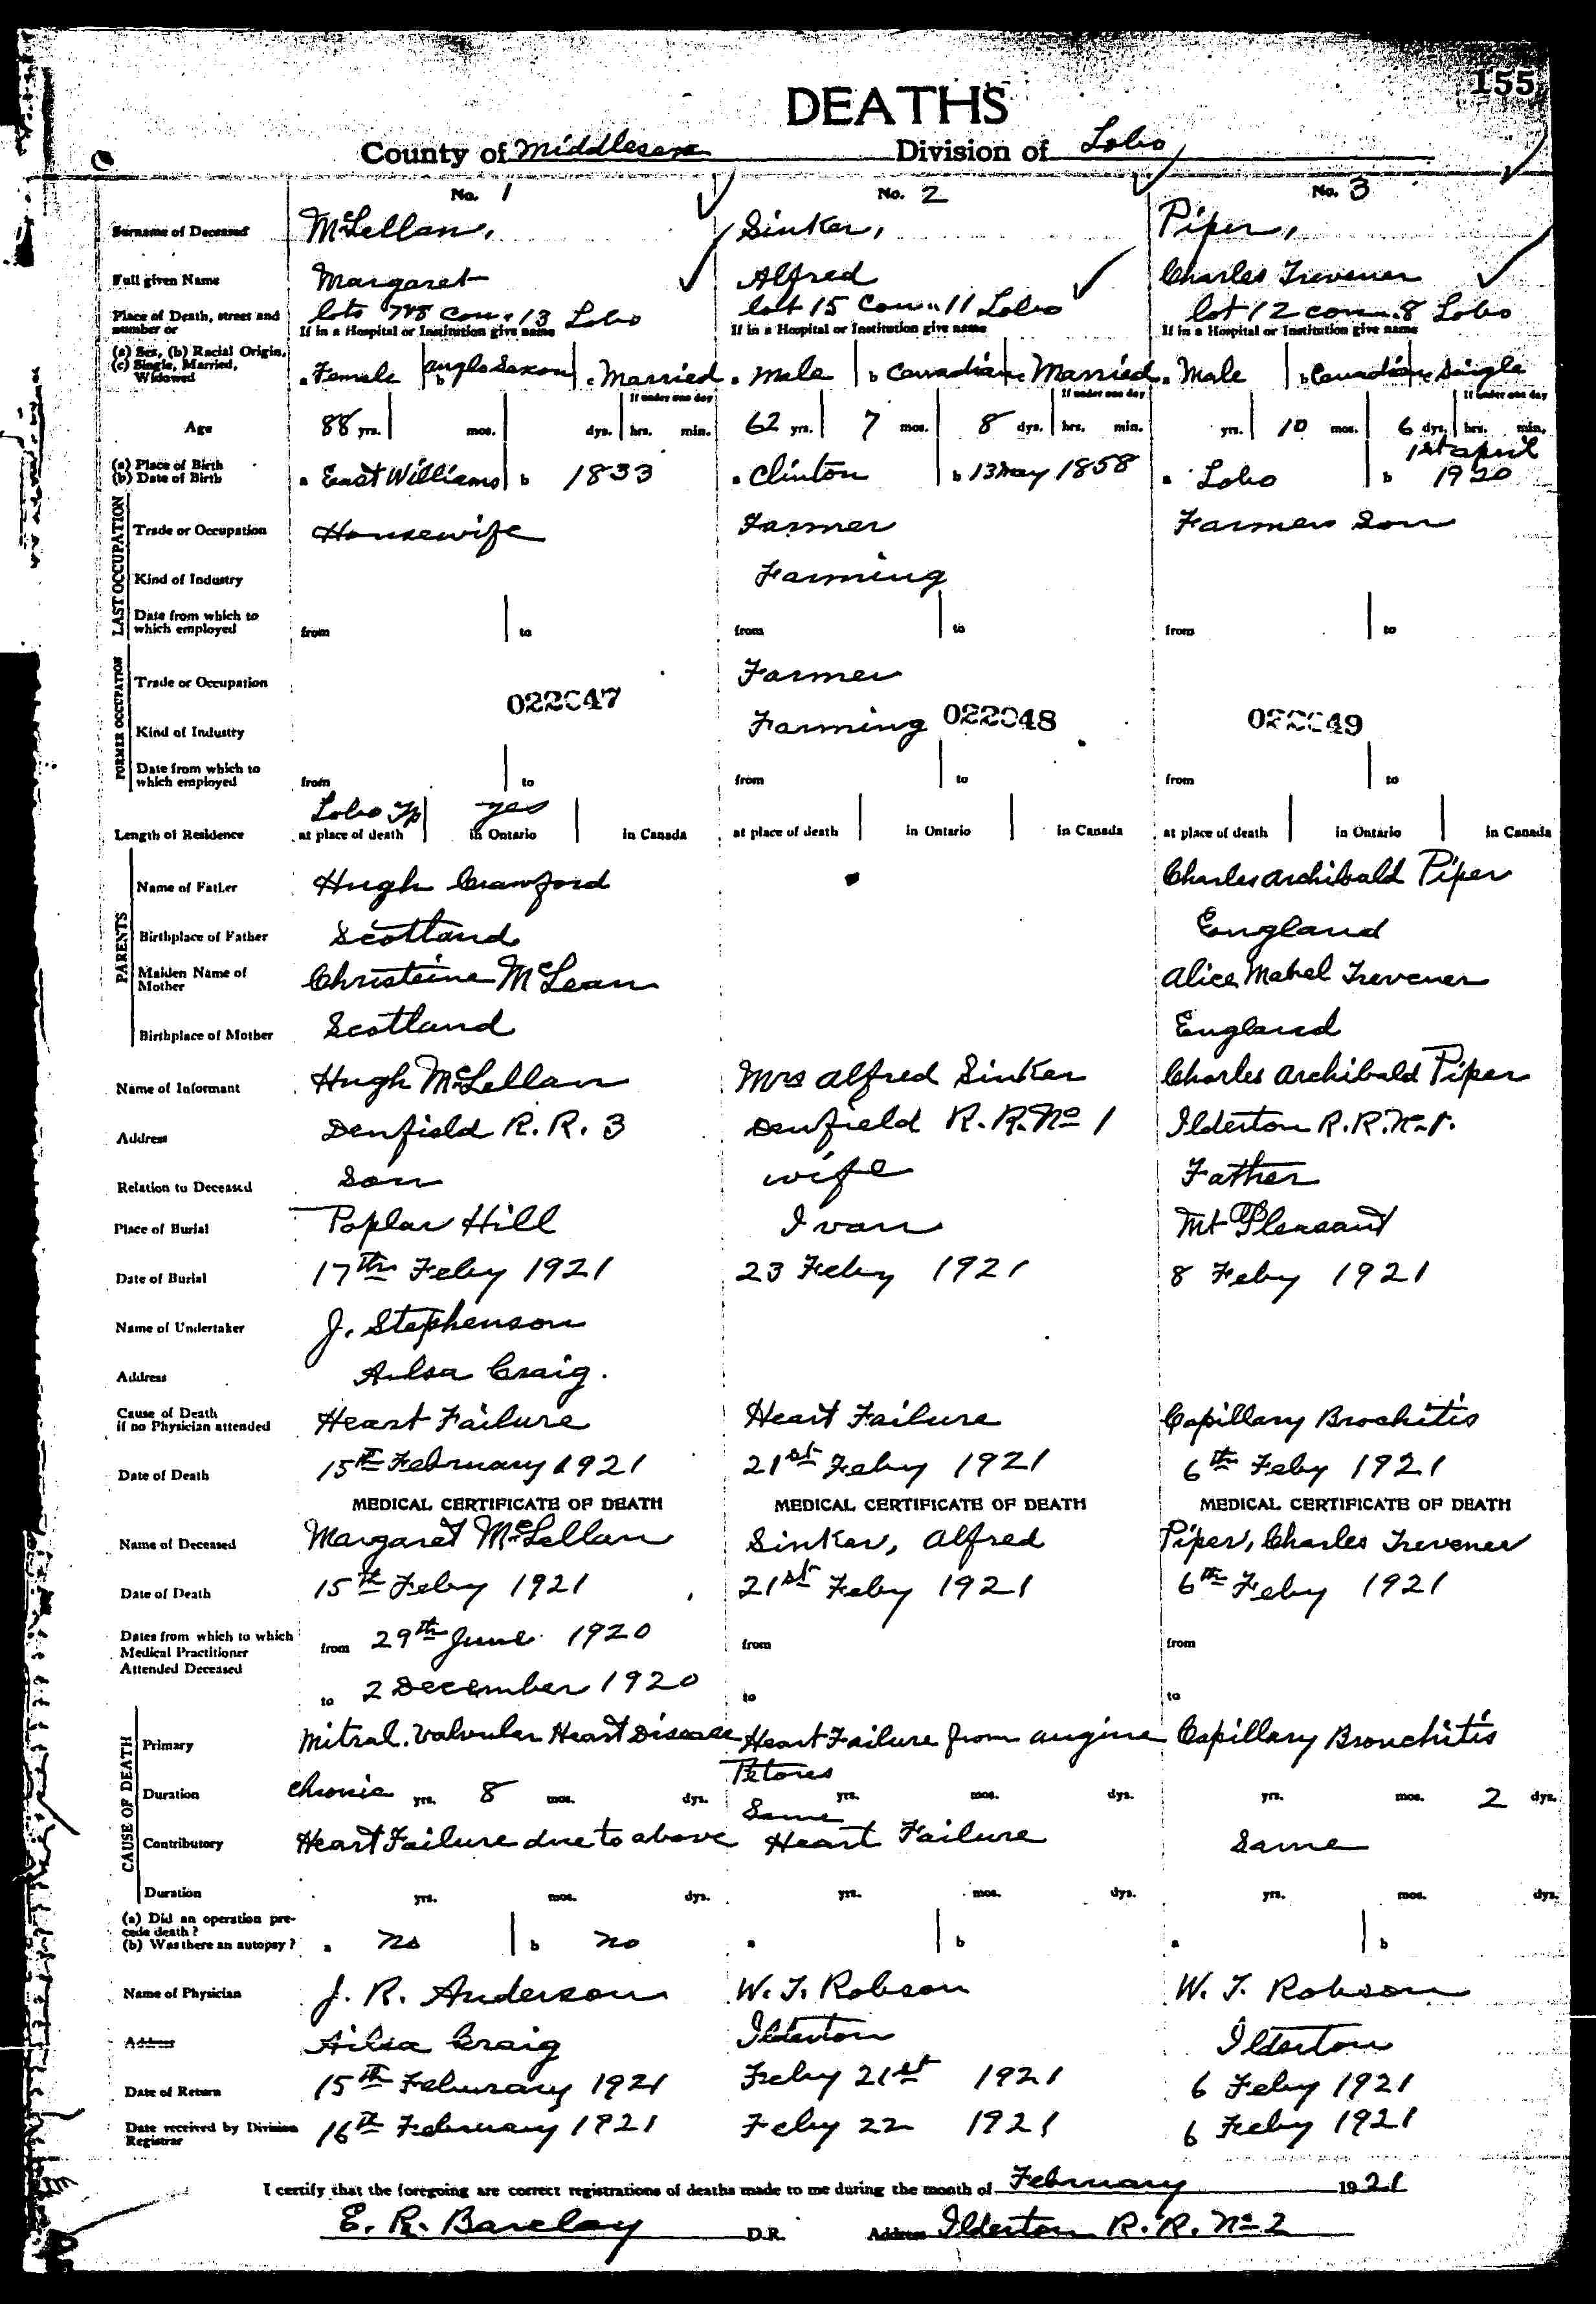 155
DEATHS
County of Middlesex Division of Lobo
No. 1 No. 2 No. 3
Surname of Deceased McLellan, Sinker, Piper,
Full given Name Margaret Alfred Charles Trevener
Place of Death, street and number or lots 7&8 con. 13 Lobo lot 15 Con. 11 Lobo lot 12 con. 8 Lobo
If in a Hospital or Institution give name If in a Hospital or Institution give name If in a Hospital or Institution give name
(a) Sex, (b) Racial Origin, (c) Single, Married, Widowed a Female b Anglo Saxon c Married a Male b Canadian c Married a Male b Canadian c Single
If under one day If under one day If under one day
Age 88 yrs. mos. dys. hrs. min. 62 yrs. 7 mos. 8 dys. hrs. min. yrs. 10 mos. 6 dys. hrs. min.
(a) Place of Birth (b) Date of Birth a East Williams b 1833 a Clinton b 13 May 1858 a Lobo b 1st April 1920
LAST OCCUPATION
Trade or Occupation Housewife Farmer Farmers Son
Kind of Industry Farming
Date from which to which employed from to from to from to
FORMER OCCUPATION
Trade or Occupation Farmer
022047
Kind of Industry Farming 022048 022049
Date from which to which employed from to from to from to
Lobo Tp yes
Length of Residence at place of death in Ontario in Canada at place of death in Ontario in Canada at place of death in Ontario in Canada
PARENTS
Name of Father Hugh Crawford Charles Archibald Piper
Birthplace of Father Scotland England
Maiden Name of Mother Christeine McLean Alice Mabel Trevener
Birthplace of Mother Scotland England
Name of Informant Hugh McLellan Mrs Alfred Sinker Charles Archibald Piper
Address Denfield R.R. 3 Denfield R.R. No 1 Ilderton R.R. No 1.
Relation to Deceased Son wife Father
Place of Burial Poplar Hill Ivan Mt Pleasant
Date of Burial 17th Feby 1921 23 Feby 1921 8 Feby 1921
Name of Undertaker J. Stephenson
Address Ailsa Craig.
Cause of Death if no Physician attended Heart Failure Heart Failure Capillary Brochitis
Date of Death 15th February 1921 21st Feby 1921 6th Feby 1921
MEDICAL CERTIFICATE OF DEATH MEDICAL CERTIFICATE OF DEATH MEDICAL CERTIFICATE OF DEATH
Name of Deceased Margaret McLellan Sinker, Alfred Piper, Charles Trevener
Date of Death 15th Feby 1921 21st Feby 1921 6th Feby 1921
Dates from which to which Medical Practitioner Attended Deceased from 29th June 1920 from from
to 2 December 1920 to to
CAUSE OF DEATH
Primary Mitral. Valvular Heart Disease Heart Failure from angine Petores Capillary Bronchitis
Duration chronic yrs. 8 mos. dys. Same yrs. mos. dys. yrs. mos. 2 dys.
Contributory Heart Failure due to above Heart Failure Same
Duration yrs. mos. dys. yrs. mos. dys. yrs. mos. dys.
(a) Did an operation precede death? (b) Was there an autopsy? a no b no a b a b
Name of Physician J. R. Anderson W. T. Robson W. T. Robson
Address Ailsa Craig Ilderton Ilderton
Date of Return 15th Feburary 1921 Feby 21st 1921 6 Feby 1921
Date received by Division Registrar 16th February 1921 Feby 22 1921 6 Feby 1921
I certify that the foregoing are correct registrations of deaths made to me during the month of February 1921
E. R. Barclay D.R. Address Ilderton R.R. No 2